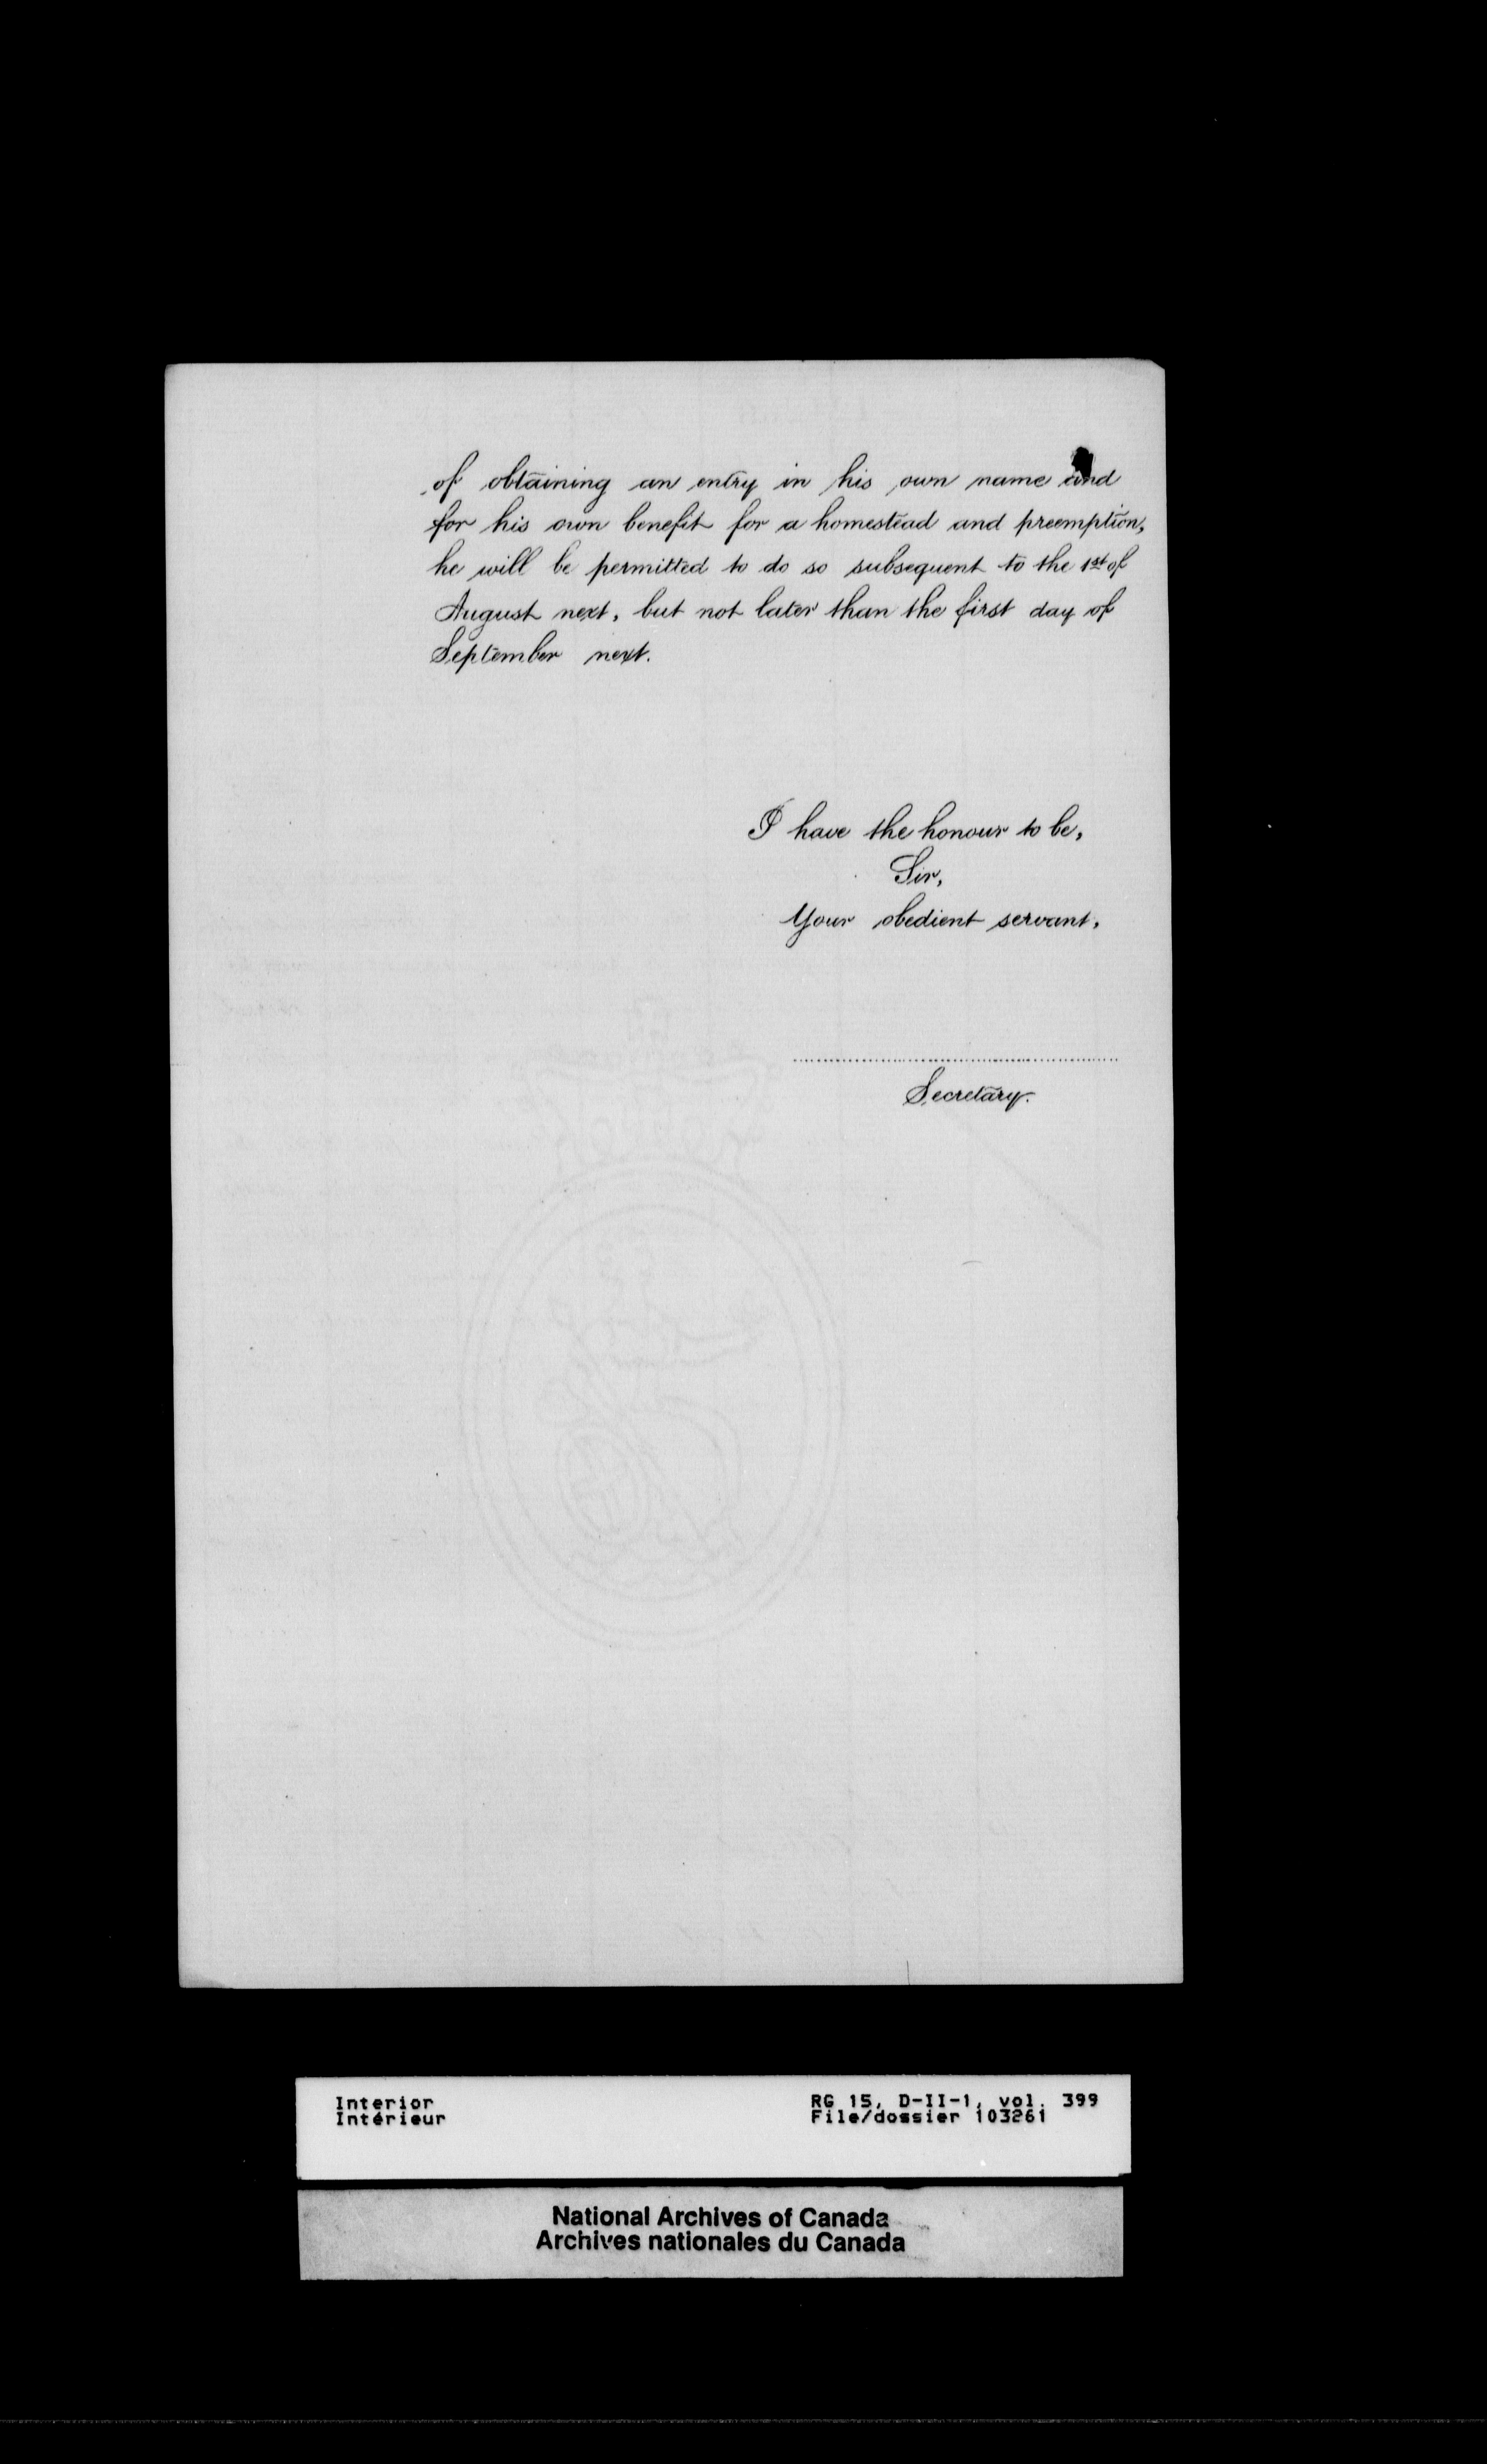 of obtaining an entry in his own name and
for his own benefit for a homestead and preemption,
he will be permitted to do so subsequent to the 1st of
August next, but not later than the first day of
September next.
I have the honour to be,
Sir,
Your obedient servant,
Secretary.
Interior
Intérieur
RG 15, D-II-1, vol. 399
File/dossier 103261
National Archives of Canada
Archives nationales du Canada